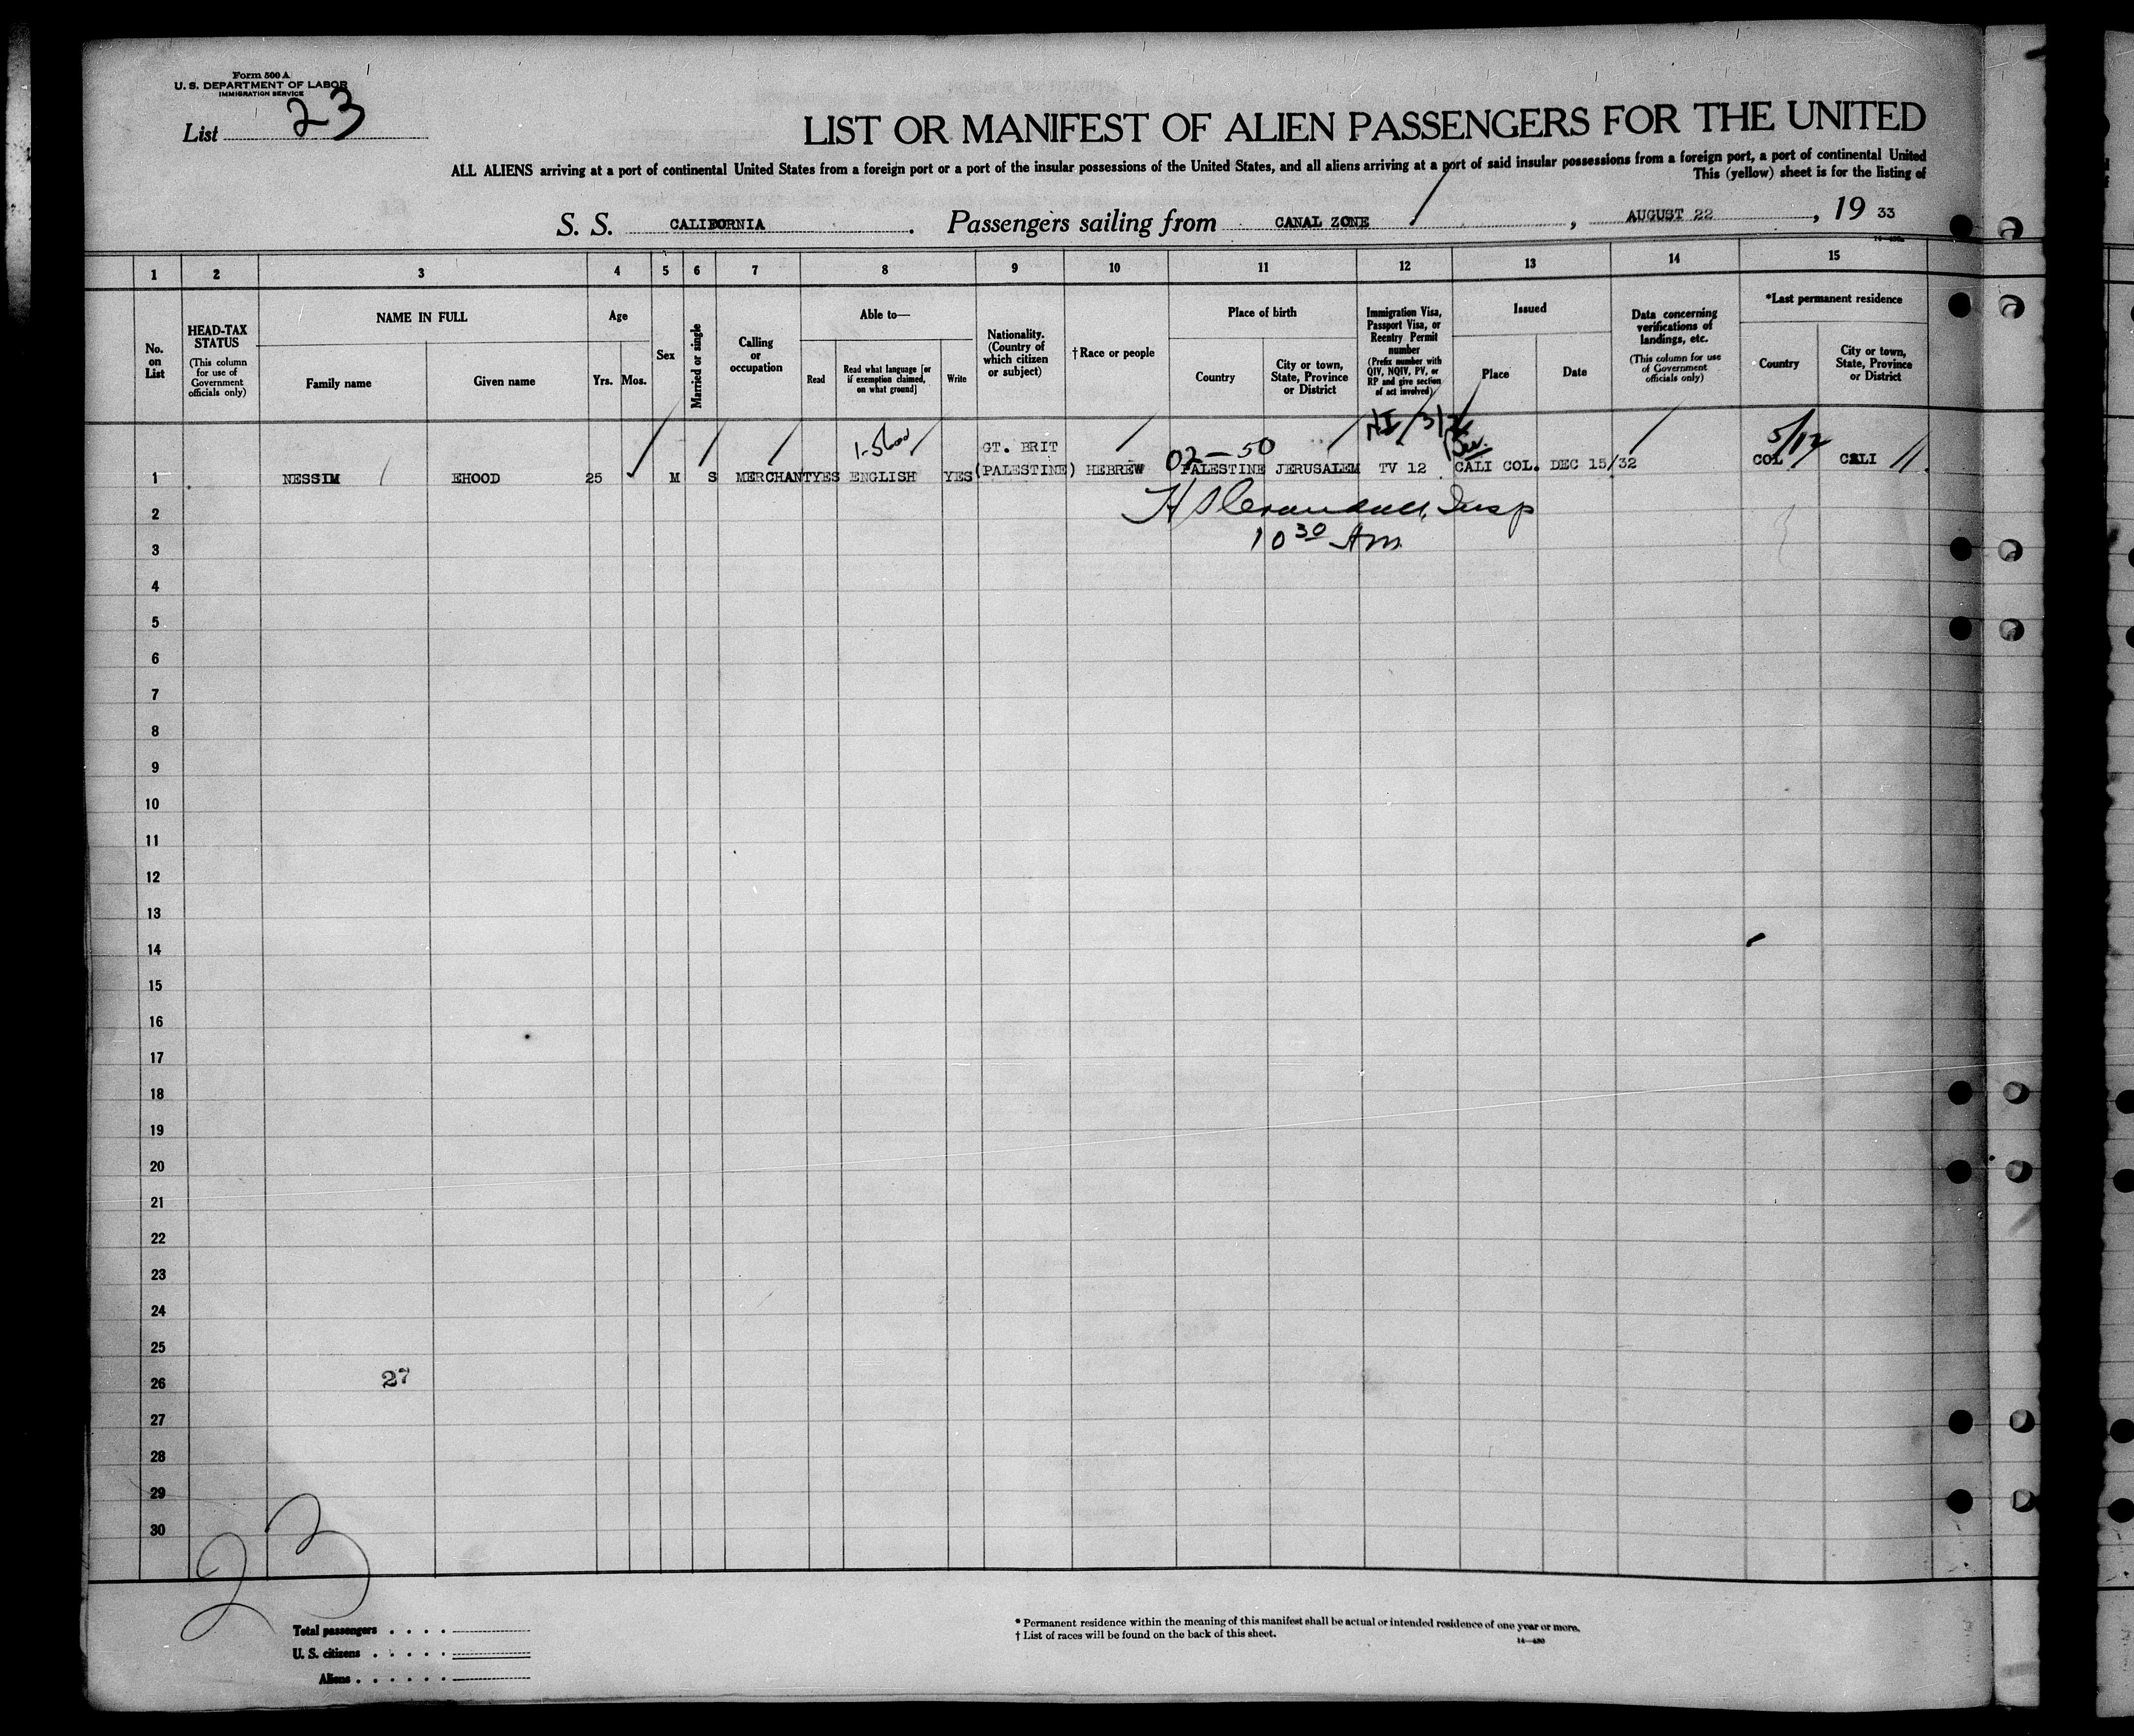 Form 500 A
U. S. DEPARTMENT OF LABOR
IMMIGRATION SERVICE
List 23
LIST OR MANIFEST OF ALIEN PASSENGERS FOR THE UNITED
ALL ALIENS arriving at a port of continental United States from a foreign port or a port of the insular possessions of the United States, and all aliens arriving at a port of said insular possessions from a foreign port, a port of continental United
This (yellow) sheet is for the listing of
S. S. CALIFORNIA. Passengers sailing from CANAL ZONE, AUGUST 22, 19 33
1 2 3 4 5 6 7 8 9 10 11 12 13 14 15
No. on List
HEAD-TAX STATUS
(This column for use of Government officials only)
NAME IN FULL
Family name
Given name
Age
Yrs. Mos.
Sex
Married or single
Calling or occupation
Able to—
Read
Read what language [or if exemption claimed, on what ground]
Write
Nationality. (Country of which citizen or subject)
† Race or people
Place of birth
Country
City or town, State, Province or District
Immigration Visa, Passport Visa, or Reentry Permit number
(Prefix number with QIV, NQIV, PV, or RP and give section of act involved)
Issued
Place
Date
Data concerning verifications of landings, etc.
(This column for use of Government officials only)
*Last permanent residence
Country
City or town, State, Province or District
02-50
5/12
GT. BRIT
1 NESSIM EHOOD 25 M S MERCHANT YES ENGLISH YES (PALESTINE) HEBREW PALESTINE JERUSALEM TV 12 CALI COL. DEC 15/32 COL CALI 11
2 Insp
3 10 30 Am
4
5
6
7
8
9
10
11
12
13
14
15
16
17
18
19
20
21
22
23
24
25
26 27
27
28
29
30
23
Total passengers
U. S. citizens
Aliens
* Permanent residence within the meaning of this manifest shall be actual or intended residence of one year or more.
† List of races will be found on the back of this sheet.
14—430